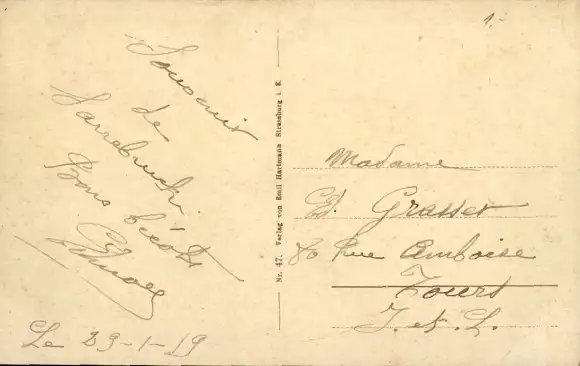 1.-
Souvenir
de
Sarrebruck
Bons bécots
Le 29-1-19
Nr. 47. Verlag von Emil Hartmann Strassburg i. E.
Madame
Ed. Grasset
80 Rue Amboise
Tours
I. et. L.